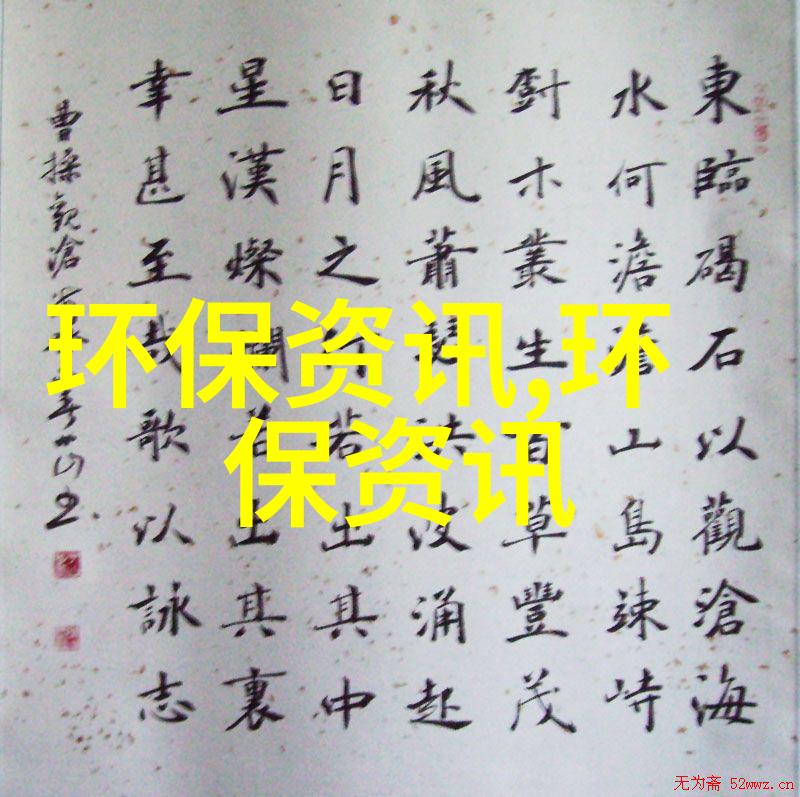 東臨碣石以觀滄海
水何澹澹山島竦峙
尌木叢生百草豐茂
秋風蕭瑟洪波涌起
日月之行若出其中
星漢燦爛若出其裏
幸甚至哉歌以詠志
曹操觀滄
环保资讯,环
保资讯
无为斋 52wwz.cn